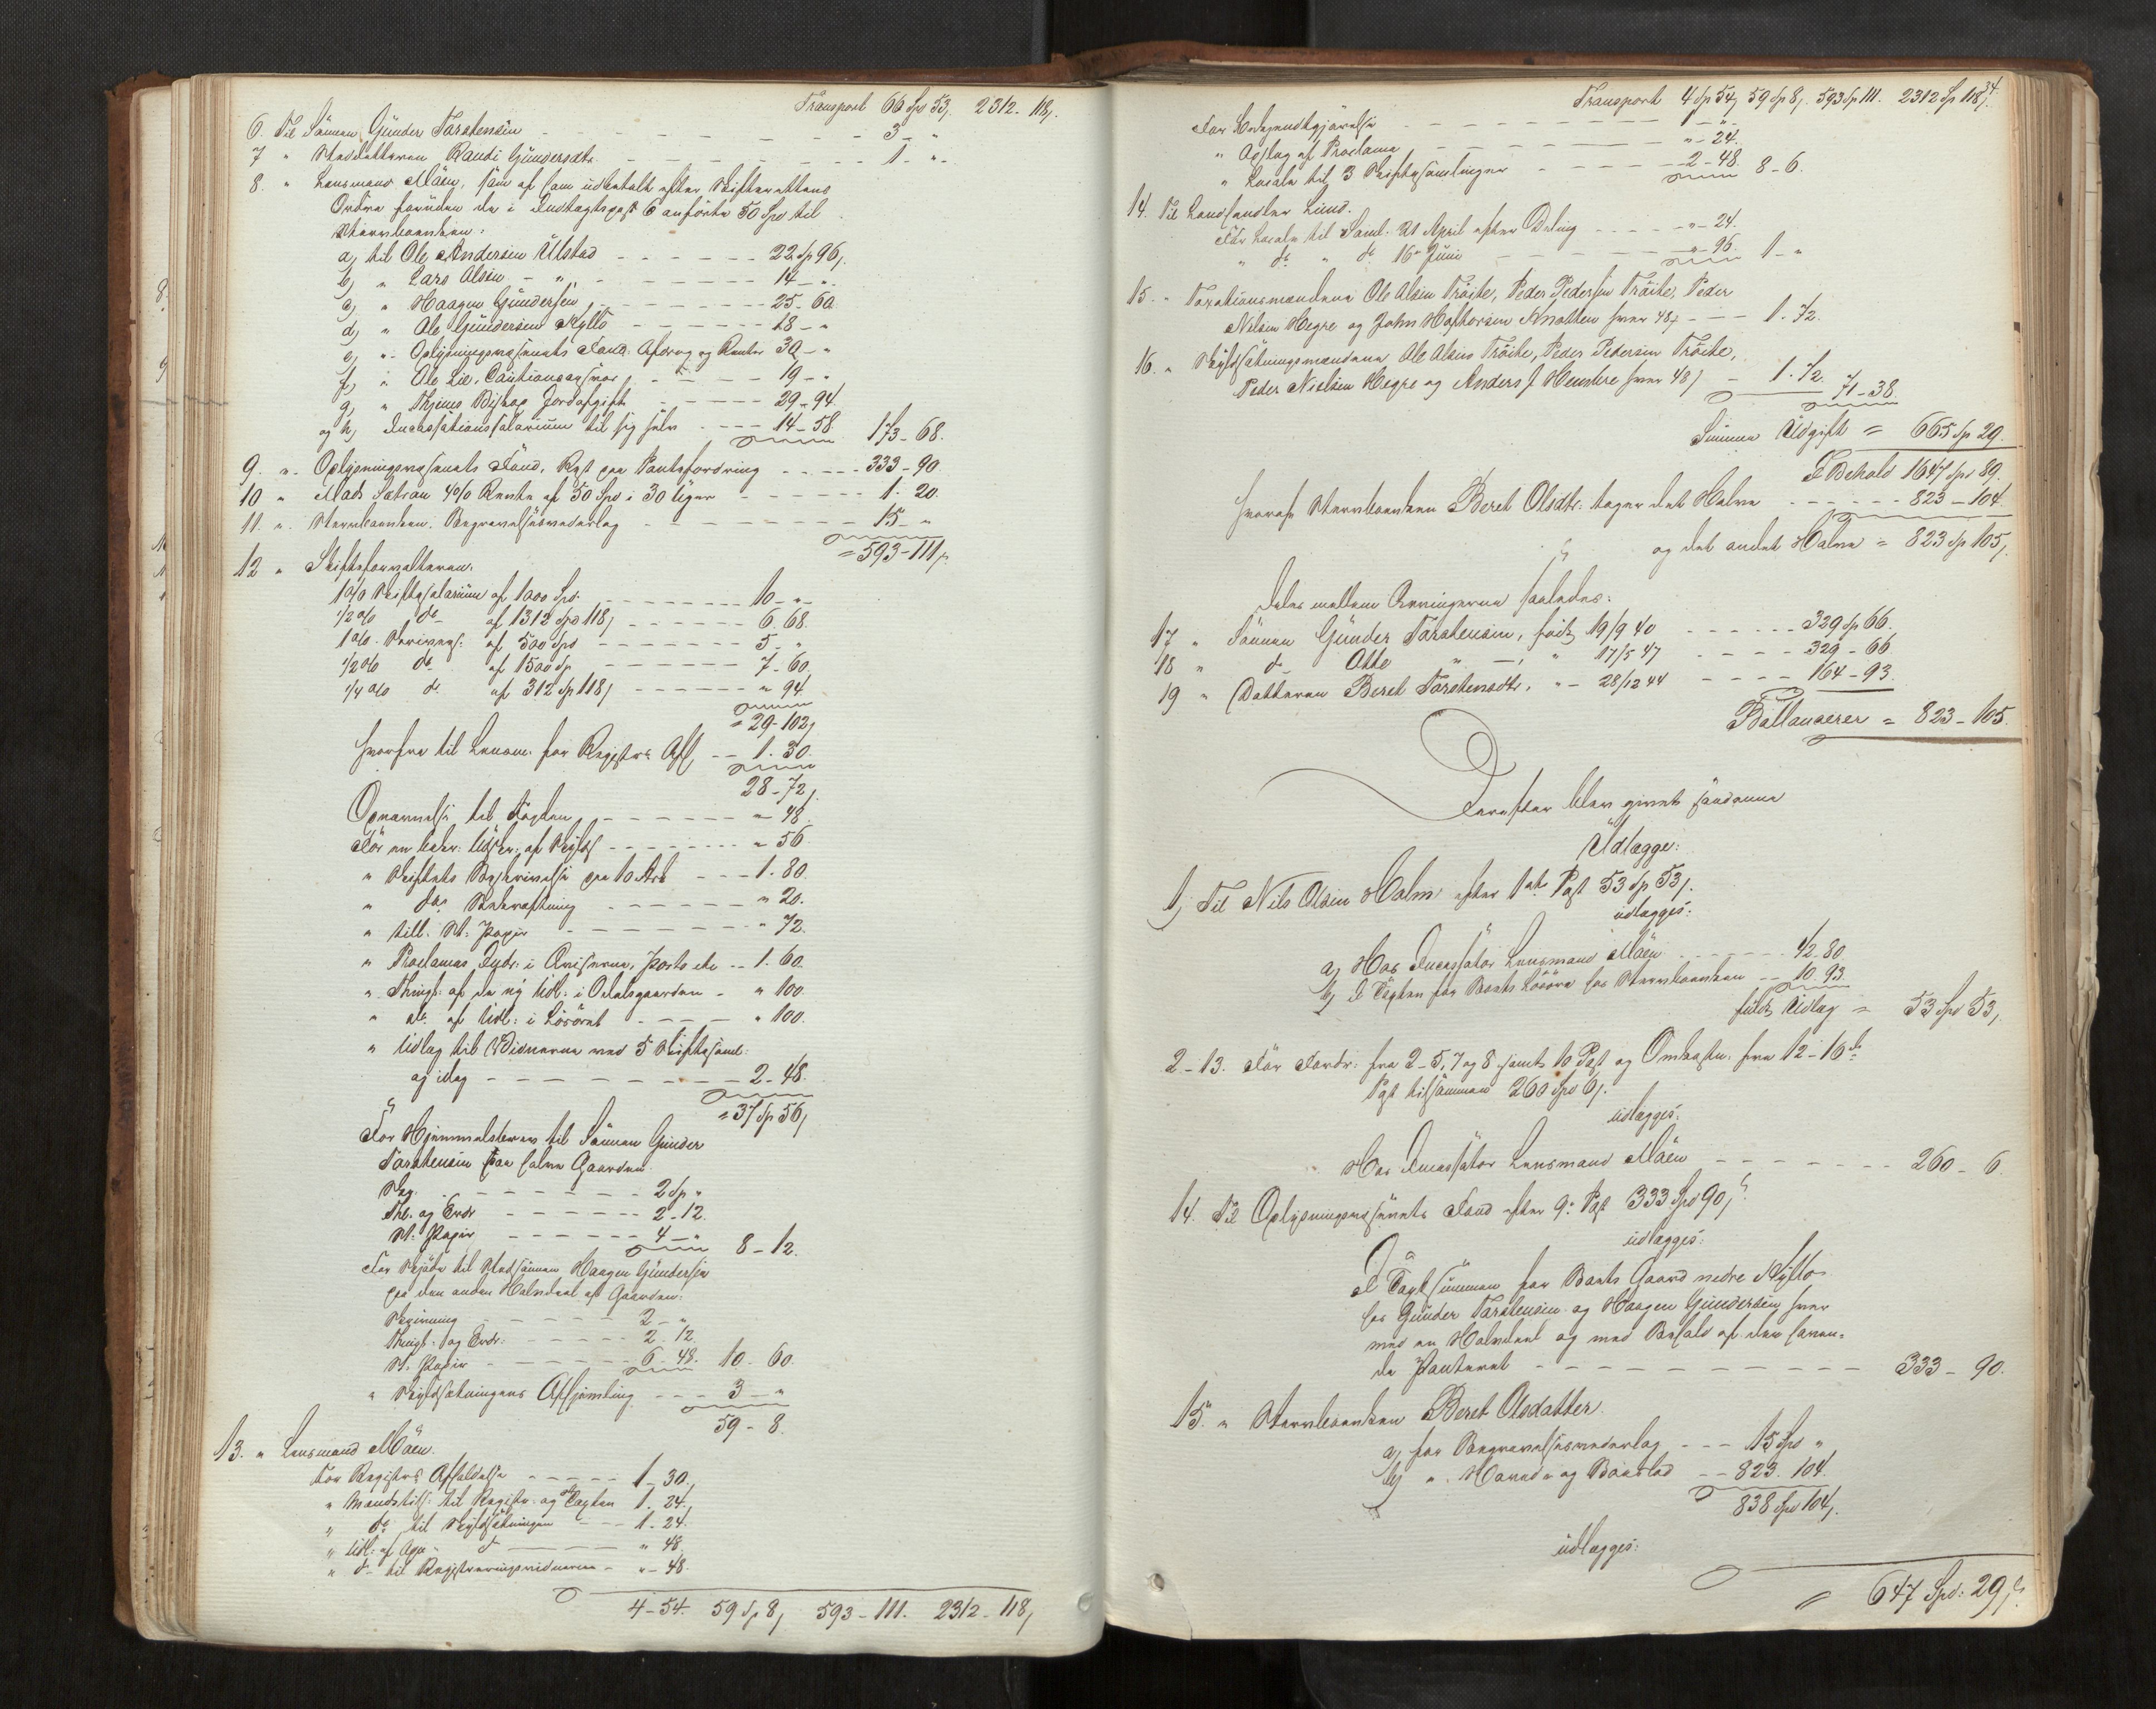 Transport 66 Spd 53, 2312 - 118,
6. Til Sönnen Günder Tarstensen - - - 3 - "
7 " Steddatteren Randi Gündersdtr. - - - 1 - " -
8. " Lensmand Mäen, som af ham udbetalt efter Skifterettens
Ordre foruden de i Indtægtspost 6 anförte 50 Spd til
Stervboenken:
a, til Ole Andersen Ulstad - - - 22 Sp 96,
b, " Lars Olsen - " - - - 14 - " -
c, " Haagen Gündersen - - - 25 - 60
d, " Ole Gündersen Kyllo - - - 18 - "
e, " Oplysningsvæsenets Fond: Afdrag og Renter 30 - "
f, " Ole Lie, Cautionsansvar - - - 19 - "
g, " Thjems Bislag Jordafgift - - - 29 - 94
og h, Incassationssalarium til sig selv - - - 14 - 58 173 - 68.
9. " Oplysningsvæsenets Fond, Rest paa Pantefordring - - - 333 - 90
10 " Mads Sætran 4% Rente af 50 Spd i 30 Uger - - - 1 - 20.
11. " Stervboenken. Begravelsesvederlag - - - 15 - "
= 593 - 111,
12 " Skifteforvalteren.
1% Skiftesalarium af 1000 Spd. - - - 10 - " -
1/2% do af 1312 Spd 118, - - - 6. 68.
1% Skrivens: af 500 Spd - - - 5 - "
1/2% do af 1500 Sp - - - 7 - 60.
1/4% do af 312 Sp 118, - - - " 94
= 29 - 102,
hvorfra til Lensm: for Registr: Afh, - - 1. 30.
28 - 72,
Opnævnelse til Fogden - - - " 48
For en bekr: Udskr: af Skylds - - - " 56
" Skiftets Beskrivelse paa 10 Ark - - - 1. 80.
" dets Bekræftning - - - " 20.
" till. St: Papir - - - " 72.
" Proclamas Indr: i Aviserne, Porto etc - - 1. 60.
" Thingl: af de ny Udl: i Odelsgaarden - " 100.
" do. af Udl: i Lösöret - - - " 100.
" Udlæg til Vidnerne ved 5 Skiftesaml:
og idag - - - 2 - 48.
= 37 Sp 56,
For Hjemmelsbrev til Sönnen Günder
Tarstensen paa halve Gaarden.
Skr. - - - 2 Sp "
Thl: og Erdr - - - 2 - 12.
St: Papir - - - 4 - " 8 - 12.
For Skjöde til Stedsönnen Haagen Gündersen
paa den anden Halvdeel af Gaarden:
Skrivning - - - 2 - "
Thingl: og Erdr: - - - 2. 12
St: Papir - - - 6. 48. 10. 60.
" Skyldsætningens Afhjemling - - - 3 - "
59 - 8.
13. " Lensmand Mäen.
For Registrs Afholdelse - - - 1 - 30,
" Mandstils: til Registr: og Taxten 1. 24.
" do til Skyldsætningen - - 1 - 24.
" Udl: af do " 48
" do til Registreringsvidnerne - " - 48.
4 - 54. 59 Sp 8, 593 - 111. 2312 - 118,
34.
Transport 4 Sp 54, 59 Sp 8, 593 Sp 111. 2312 Sp 118,
For Bekjendtgjörelse - - - 1 - " -
" Opslag af Proclama - - - " - 24.
" Locale til 3 Skiftesamlinger - - - 2 - 48. 8 - 6.
14. Til Landhandler Lund.
For Locale til Saml. 21 April efter Deling - - - " - 24.
" do " do 16 Juni - - - " - 96. 1 - "
15. " Taxationsmændene Ole Olsen Tröite, Peder Pedersen Tröite, Peder
Nilsen Hegre og John Hafhorsen Mnotten hver 48, - - - 1. 72.
16. " Skyldsætningsmændene Ole Olsens Tröite, Peder Pedersen Tröite,
Peder Nielsen Hegre og Anders J Hembre hver 48, - 1. 72. 71 - 38.
Summa Udgift = 665 Sp 29.
I Behold 1647 Spd 89.
hvoraf Stervboenken Beret Olsdtr: tager det Halve - - - 823 - 104.
og det andet Halve = 823 Sp 105,
deles mellem Arvingerne saaledes:
17 " Sönnen Günder Tarstensen, födt 19/9 40 - - - 329 Sp 66.
18 " do Otto " - , " 17/5 47 - - - 329 - 66
19 " Datteren Beret Tarstensdtr, " - 28/12 44 - - - 164 - 93.
Ballancerer = 823 - 105.
Derefter blev givet saadanne
Udlægge:
1, Til Nils Olsen Halm efter 1ste Post 53 Sp 53,
udlægges:
a, Hos Incassator Lensmand Mäen - - - 42. 80
b, I Taxten for Boets Lösöre hos Stervboenken - - 10. 93.
fuldt Udlæg = 53 Spd 53,
2 - 13. For Fordr: fra 2 - 5, 7 og 8 samt 10 Post og Omkostn: fra 12 - 16de
Post tilsammen 260 Spd 6,
udlægges:
Hos Incassator Lensmand Mäen - - - 260 - 6.
14. Til Oplysningsvæsenets Fond efter 9: Post 333 Spd 90,
udlægges:
I Taxtsummen for Boets Gaard nedre Kyllo
hos Günder Tarstensen og Haagen Gündersen hver
med en Halvdeel og med Behold af den haven-
de Panteret - - - 333 - 90.
15. " Stervboenken Beret Olsdatter.
a, for Begravelsesvederlag - - - 15 Spd "
b, " Hoved- og Boeslod - - 823. 104.
838 Spd 104,
udlægges:
= 647 Spd: 29,